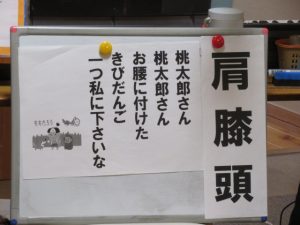 肩膝頭
桃太郎さん
桃太郎さん
お腰に付けた
きびだんご
一つ私に下さいな
ももたろう